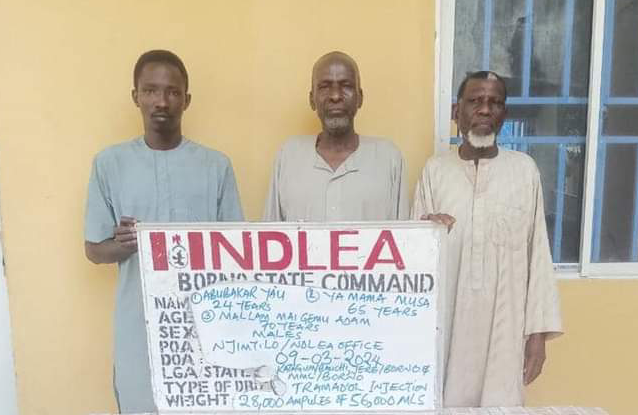 NDLEA
BORNO STATE COMMAND
NAM ① ABUBAKAR YAU ② YA MAMA MUSA
AGE 24 YEARS 65 YEARS
③ MALLAM MAI GEMU ADAM
SEX 70 YEARS
MALES
POA NJIMTILO/NDLEA OFFICE
DOA 09-03-2024
LGA/STATE KATAGUM/BAUCHI, JERE/BORNO &
MMC/BORNO
TYPE OF DRU TRAMADOL INJECTION
WEIGHT 28,000 AMPULES & 56,000 MLS